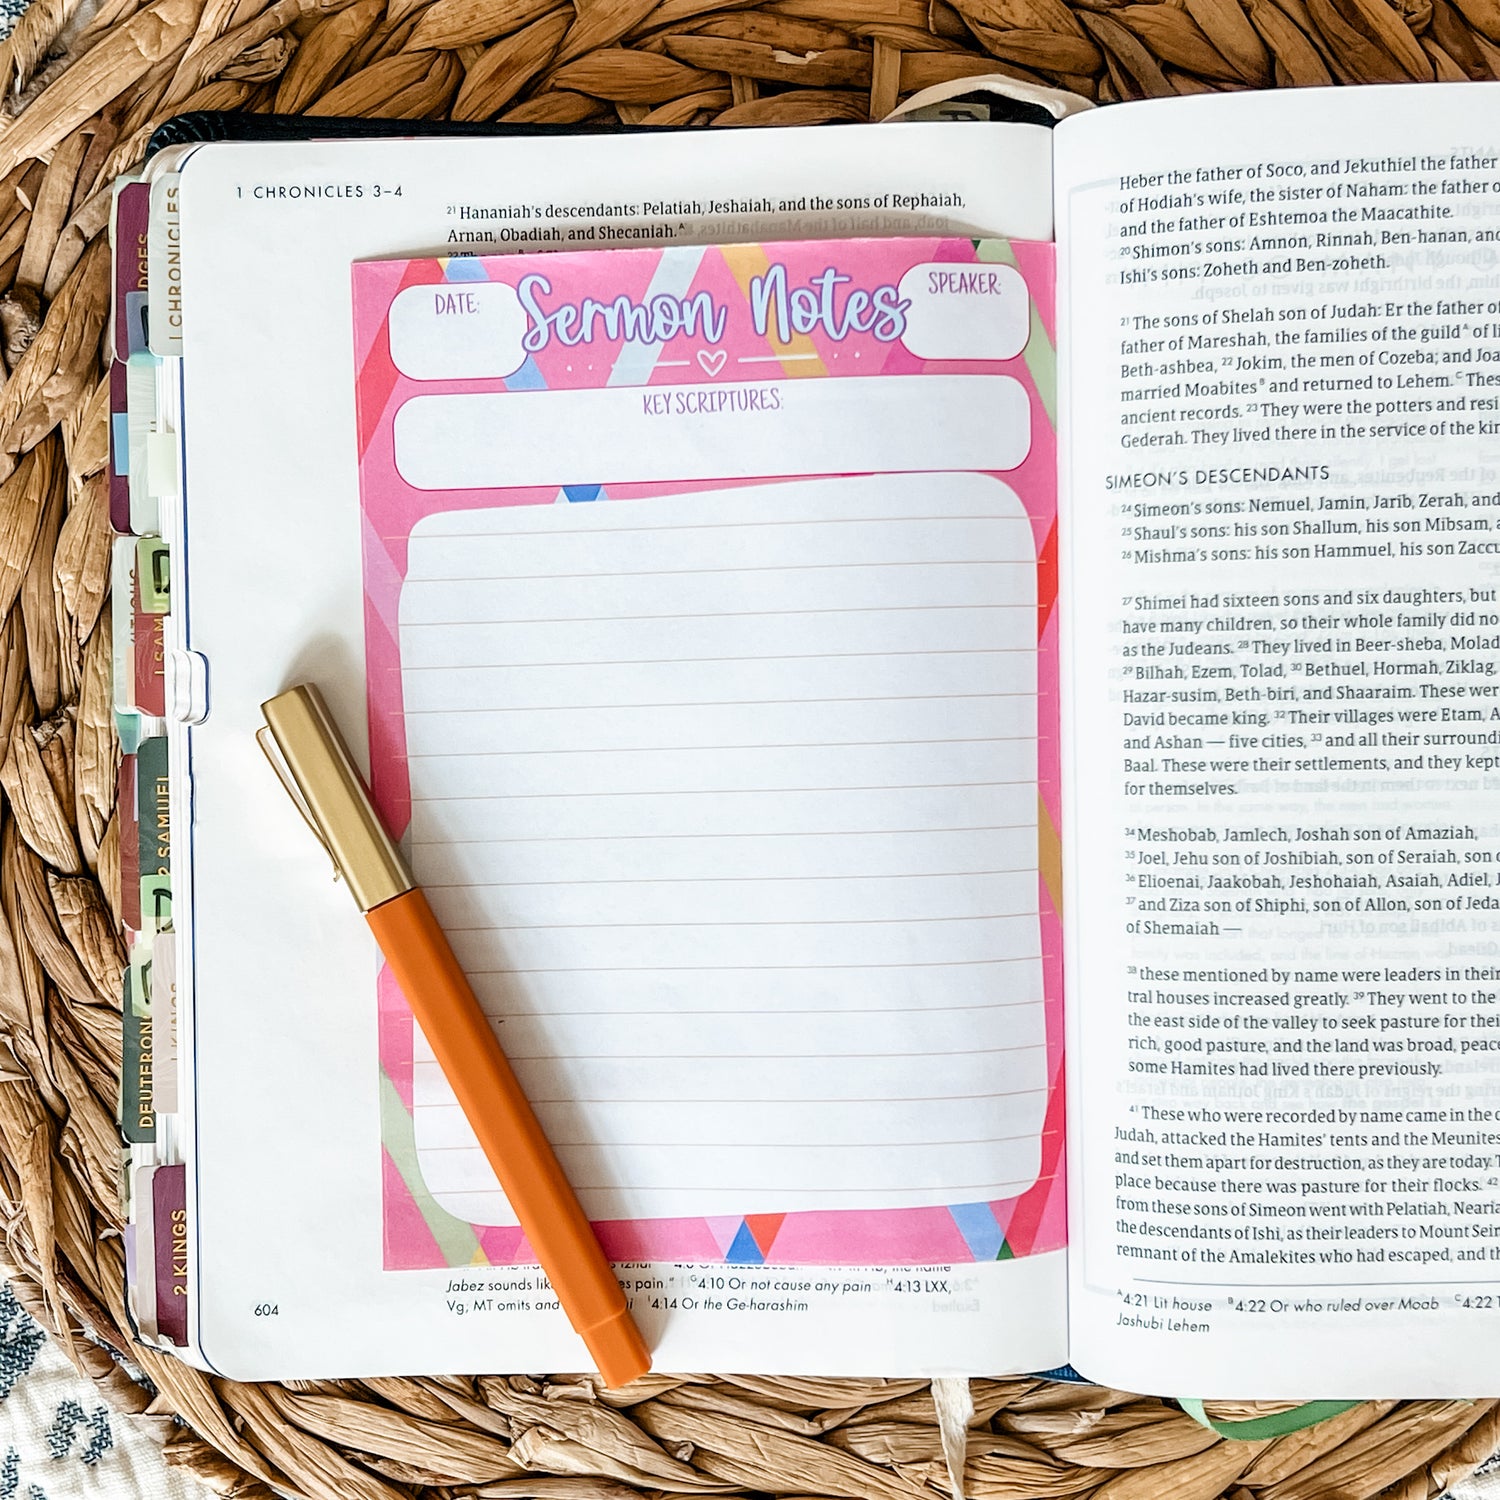 1 CHRONICLES 3–4
21 Hananiah's descendants: Pelatiah, Jeshaiah, and the sons of Rephaiah,
Arnan, Obadiah, and Shecaniah.A
DATE:
Sermon Notes
SPEAKER:
KEY SCRIPTURES:
Jabez sounds pain." G4:10 Or not cause any pain H4:13 LXX,
Vg; MT omits and I4:14 Or the Ge-harashim
604
Heber the father of Soco, and Jekuthiel the father
of Hodiah's wife, the sister of Naham: the father
and the father of Eshtemoa the Maacathite.
20 Shimon's sons: Amnon, Rinnah, Ben-hanan, and
Ishi's sons: Zoheth and Ben-zoheth.
21 The sons of Shelah son of Judah: Er the father of
father of Mareshah, the families of the guildA of
Beth-ashbea, 22 Jokim, the men of Cozeba; and
married MoabitesB and returned to Lehem.C
ancient records. 23 They were the potters and
Gederah. They lived there in the service of the
SIMEON'S DESCENDANTS
24 Simeon's sons: Nemuel, Jamin, Jarib, Zerah, and
25 Shaul's sons: his son Shallum, his son Mibsam,
26 Mishma's sons: his son Hammuel, his son
27 Shimei had sixteen sons and six daughters, but
have many children, so their whole family did
as the Judeans. 28 They lived in Beer-sheba,
29 Bilhah, Ezem, Tolad, 30 Bethuel, Hormah, Ziklag,
Hazar-susim, Beth-biri, and Shaaraim. These
David became king. 32 Their villages were Etam,
and Ashan — five cities, 33 and all their
Baal. These were their settlements, and they kept
for themselves.
34 Meshobab, Jamlech, Joshah son of Amaziah,
35 Joel, Jehu son of Joshibiah, son of Seraiah, son
36 Elioenai, Jaakobah, Jeshohaiah, Asaiah, Adiel,
37 and Ziza son of Shiphi, son of Allon, son of
of Shemaiah —
38 these mentioned by name were leaders in their
tral houses increased greatly. 39 They went to the
the east side of the valley to seek pasture for
rich, good pasture, and the land was broad,
some Hamites had lived there previously.
41 These who were recorded by name came in the
Judah, attacked the Hamites' tents and the Meunites
and set them apart for destruction, as they are today.
place because there was pasture for their flocks. 42
from these sons of Simeon went with Pelatiah,
the descendants of Ishi, as their leaders to Mount Seir
remnant of the Amalekites who had escaped, and
A4:21 Lit house B4:22 Or who ruled over Moab C4:22
Jashubi Lehem
1 CHRONICLES
1 SAMUEL
2 SAMUEL
1 KINGS
DEUTERON
2 KINGS